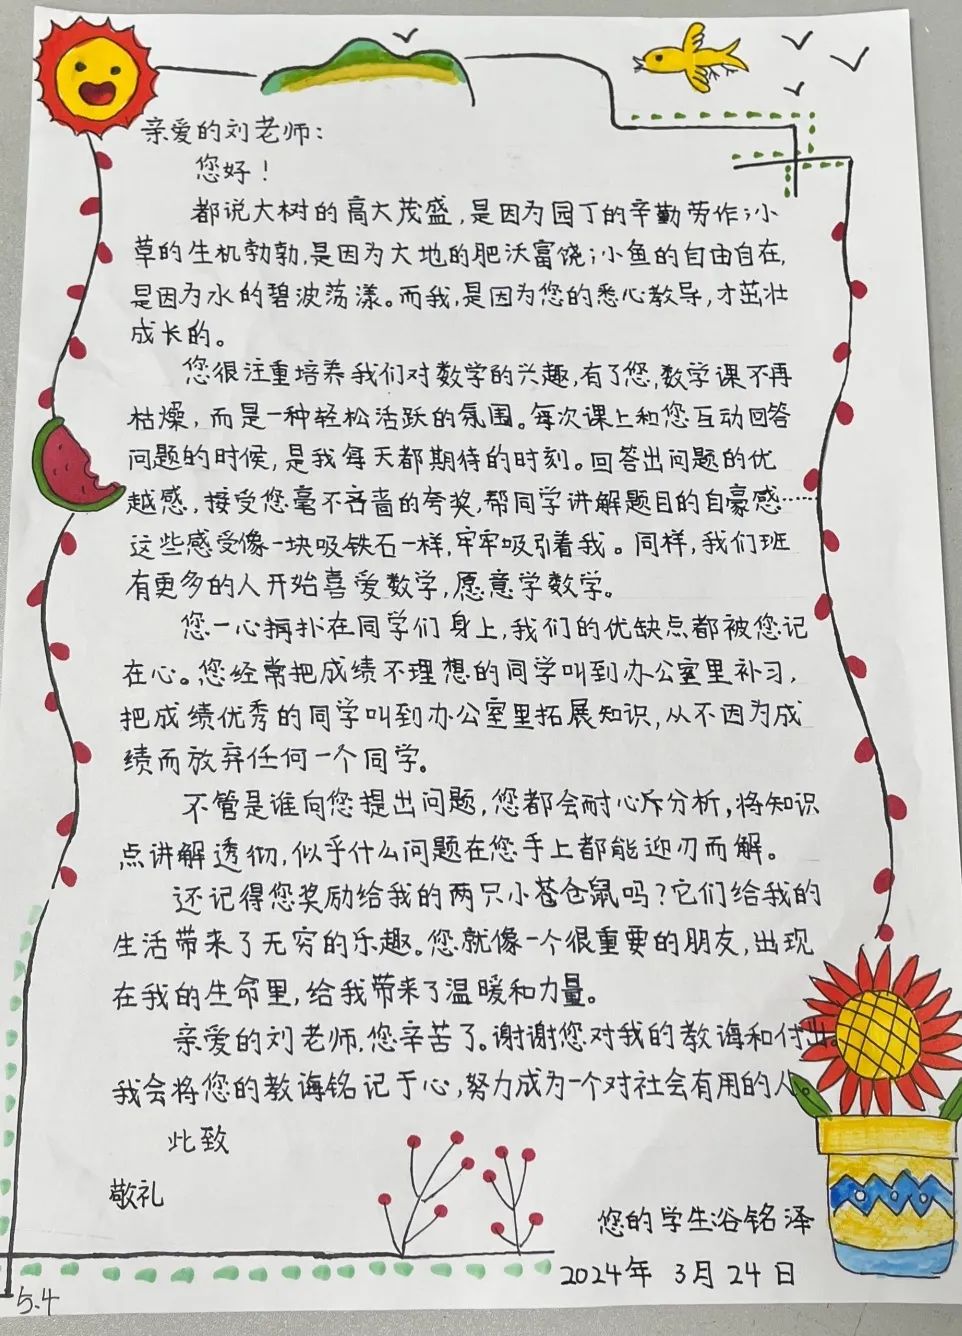 亲爱的刘老师：
您好！
都说大树的高大茂盛，是因为园丁的辛勤劳作；小
草的生机勃勃，是因为大地的肥沃富饶；小鱼的自由自在，
是因为水的碧波荡漾。而我，是因为您的悉心教导，才茁壮
成长的。
您很注重培养我们对数学的兴趣，有了您，数学课不再
枯燥，而是一种轻松活跃的氛围。每次课上和您互动回答
问题的时候，是我每天都期待的时刻。回答出问题的优
越感，接受您毫不吝啬的夸奖，帮同学讲解题目的自豪感……
这些感受像一块吸铁石一样，牢牢吸引着我。同样，我们班
有更多的人开始喜爱数学，愿意学数学。
您一心扑在同学们身上，我们的优缺点都被您记
在心。您经常把成绩不理想的同学叫到办公室里补习，
把成绩优秀的同学叫到办公室里拓展知识，从不因为成
绩而放弃任何一个同学。
不管是谁向您提出问题，您都会耐心斥分析，将知识
点讲解透彻，似乎什么问题在您手上都能迎刃而解。
还记得您奖励给我的两只小苍仓鼠吗？它们给我的
生活带来了无穷的乐趣。您就像一个很重要的朋友，出现
在我的生命里，给我带来了温暖和力量。
亲爱的刘老师，您辛苦了。谢谢您对我的教诲和付出。
我会将您的教诲铭记于心，努力成为一个对社会有用的人
此致
敬礼
您的学生浴铭泽
2024年 3月 24日
5.4